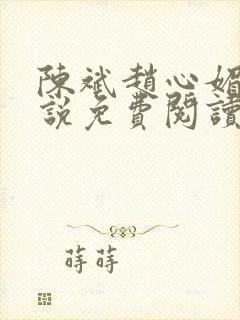 陳斌趙心媚
說免費閱讀
蒔蒔